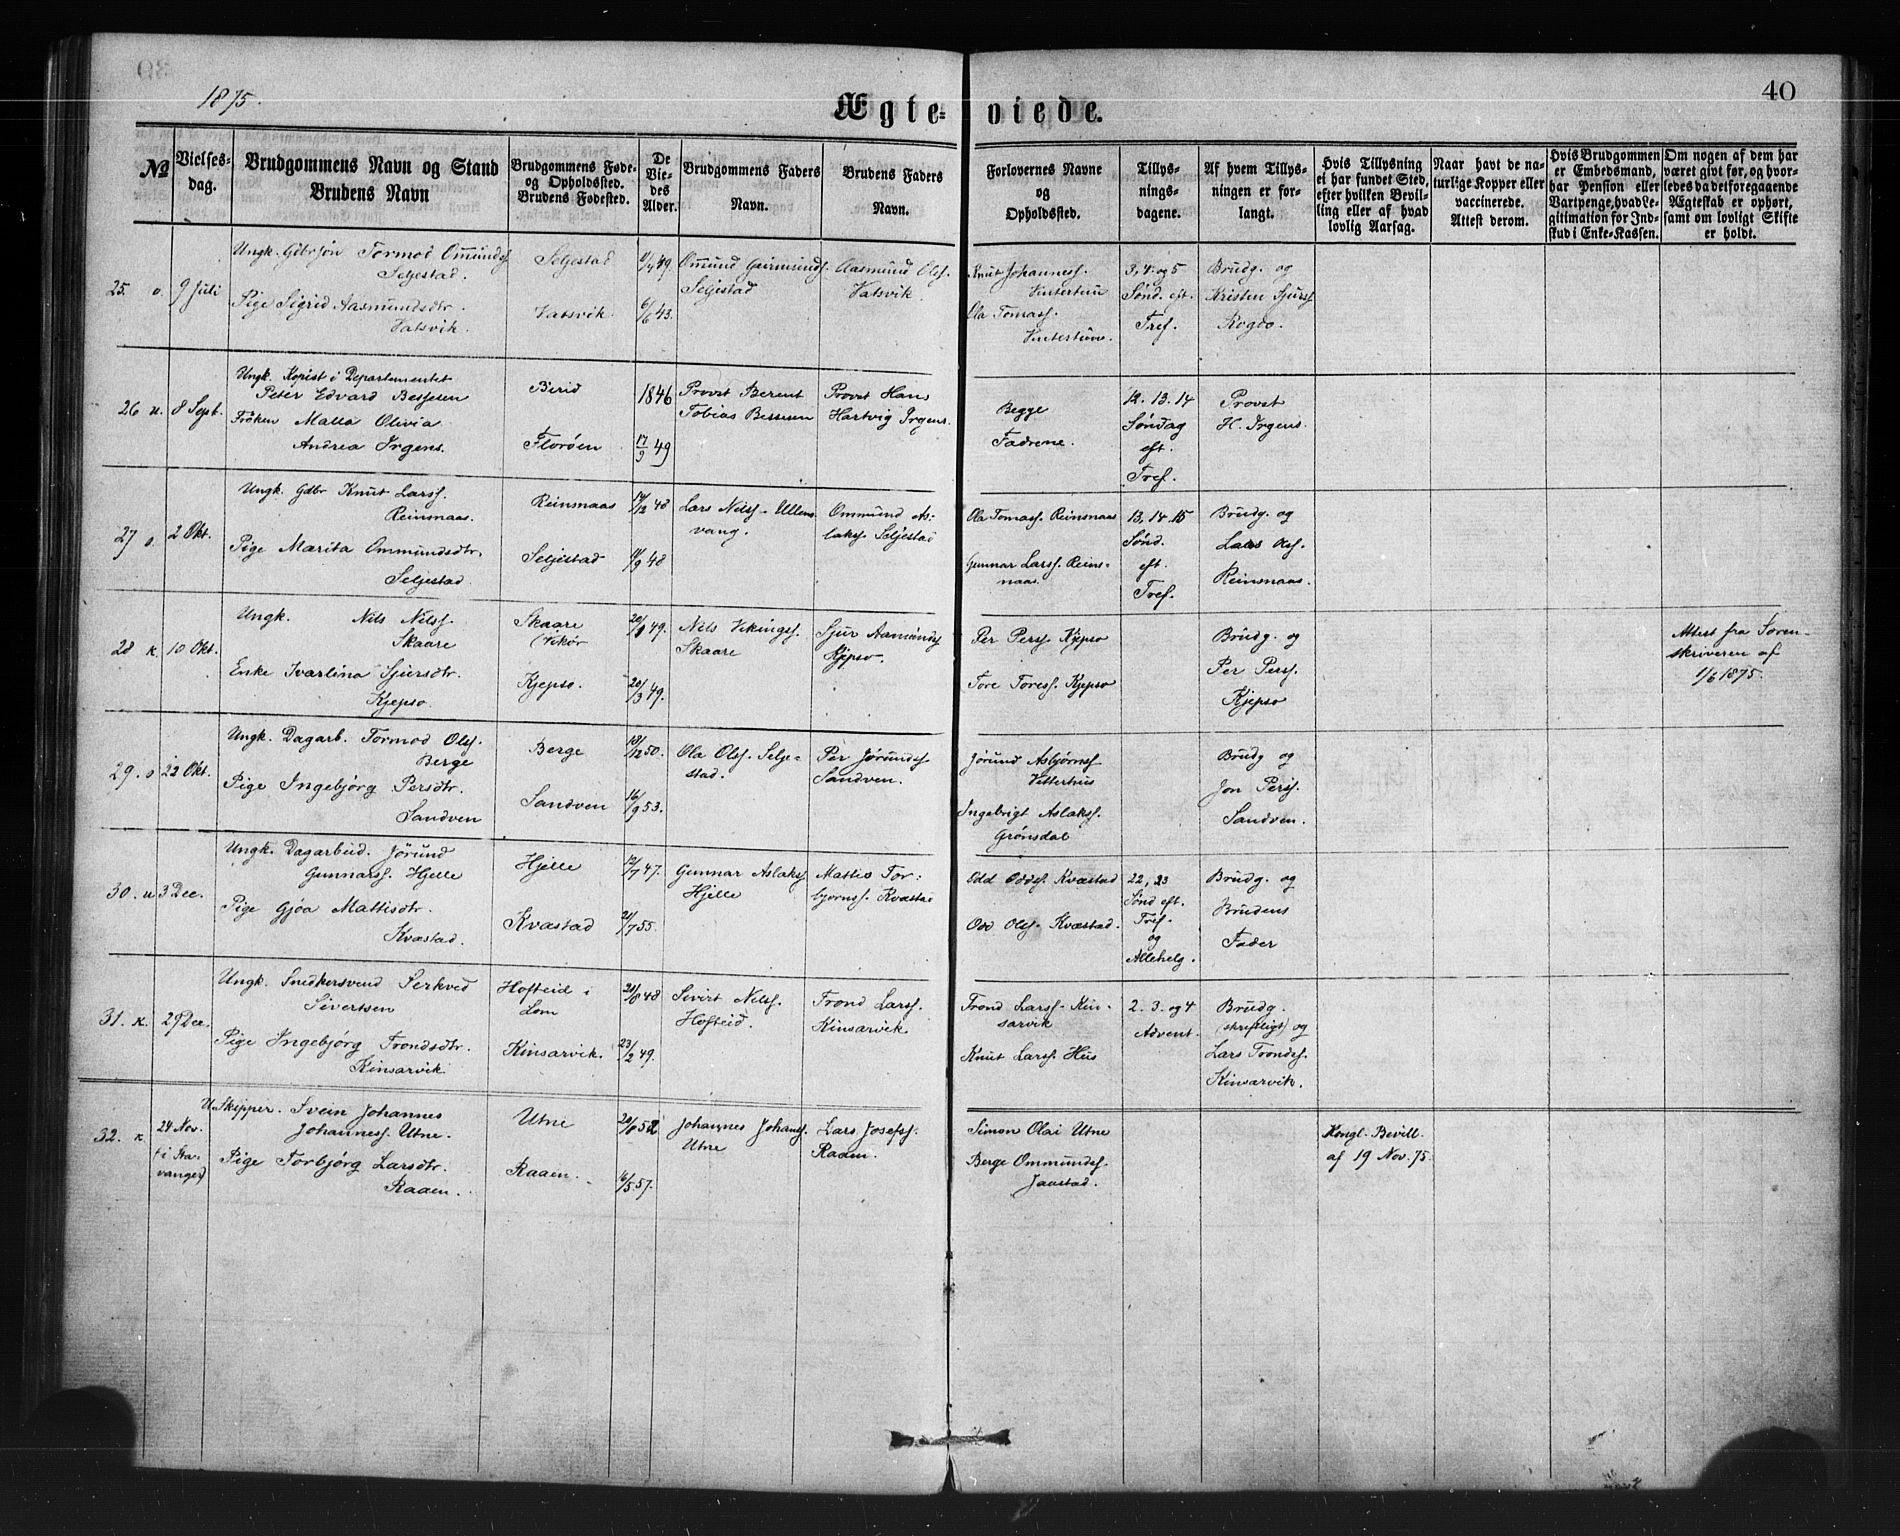 1875.
40
Ægte-viede.
No
Vielses-dag.
Brudgommens Navn og Stand
Brudens Navn
Brudgommens Føde- og Opholdssted.
Brudens Fødested.
De Viedes Alder.
Brudgommens Faders Navn.
Brudens Faders Navn.
Forlovernes Navne og Opholdssted.
Tillysningsdagene.
Af hvem Tillysningen er forlangt.
Hvis Tillysning ei har fundet Sted, efter hvilken Bevilling eller af hvad lovlig Aarsag.
Naar havt de naturlige Kopper eller vaccinerede. Attest derom.
Hvis Brudgommen er Embedsmand, har Pension eller Vartpenge, hvad Legitimation for Indskud i Enke-Kassen.
Om nogen af dem har været givt før, og hvorledes da det foregaaende Ægteskab er ophørt, samt om lovligt Skifte er holdt.
25. o. 9 Juli
Ungk. Gdbrsøn Tormod Ommunds.
Seljestad.
Pige Sigrid Aasmundsdtr.
Vatsvik.
Seljestad
Vatsvik.
49.
6/6 43.
Ommund Geirmunds.
Seljestad
Aasmund Ols.
Vatsvik.
Knut Johanness.
Vintertun
Ola Tomass.
Vintertun.
3, 4. og 5
Sønd. eft.
Tref.
Brudg. og
Kristen Sjurss.
Rogdo.
26 u. 8 Sept.
Ungk. Kopist i Departementet
Peter Edvard Bessesen
Frøken Malla Olivia
Andrea Irgens.
Birid
Florøen
1846
17/9 49
Provst Berent
Tobias Bessesen
Provst Hans
Hartvig Irgens.
Begge
Fadrene.
12. 13. 14
Søndag
eft.
Tref.
Provst
H. Irgens.
27 o. 2 Okt.
Ungk. Gdbr Knut Larss.
Reinsnaas.
Pige Marita Ommundsdtr.
Seljestad.
Reinsnaas
Seljestad
/12 48
/9 48
Lars Nilss. Ullens-
vang.
Ommund As-
laks. Seljestad
Ola Tomass. Reinsnaas
Gunnar Larss. Reins-
naas.
13, 14. 15
Sønd.
eft.
Tref.
Brudg. og
Lars Ols.
Reinsnaas.
28 k. 10 Okt.
Ungk. Nils Nilss.
Skaare
Enke Ivarlina Sjursdtr.
Kjepso.
Skaare
(Vikør
Kjepso.
20/ 49.
20/3 49.
Nils Vikings.
Skaare
Sjur Aamunds
Kjepso.
Per Perss. Kjepso
Tore Toress. Kjepso
Brudg. og
Per Perss.
Kjepso
Attest fra Soren-
skriveren af
1/6 1875.
29. o 22 Okt.
Ungk. Dagarb. Tormod Ols.
Berge
Pige Ingebjørg Persdtr.
Sandven
Berge
Sandven
18/12 50.
16/9 53.
Ola Ols. Selje-
stad.
Per Jørunds.
Sandven.
Jørund Asbjørns.
Vetterhus
Ingebrigt Aslaks.
Grønsdal
Brudg og
Jon Perss.
Sandven.
30. u 3 Dec.
Ungk. Dagarbeid. Jørund
Gunnars. Hjelle
Pige Gjøa Mattisdtr.
Kvæstad.
Hjelle
Kvæstad
12/7 47.
21/7 55.
Gunnar Aslaks
Hjelle
Mattis Tor-
bjørns. Kvæstad
Odd Oddss. Kvæstad
Odd Ols. Kvæstad.
22, 23
Sønd eft.
Tref.
og
Allehelg.
Brudg. og
Brudens
Fader
31. k. 29 Dec.
Ungk. Snedkersvend Serkved
Sivertsen
Pige Ingebjørg Trondsdtr.
Kinsarvik
Hofteid i
Lom
Kinsarvik.
/8 48
23/2 49.
Sivert Nils.
Hofteid.
Trond Larss.
Kinsarvik.
Trond Larss. Kin-
sarvik
Knut Larss. Hus
2. 3. og 4
Advent.
Brudg.
(skriftligt) og
Lars Tronds.
Kinsarvik.
32. k. 24 Nov.
(i Sta-
vanger)
U. Skipper. Svein Johannes
Johanness. Utne.
Pige Torbjørg Larsdtr.
Raaen.
Utne
Raaen.
52
/5 57.
Johannes Johans.
Utne
Lars Josefs.
Raaen.
Simon Olai Utne
Berge Ommunds.
Jaastad.
Kongl. Bevill.
af 19 Nov. 75.